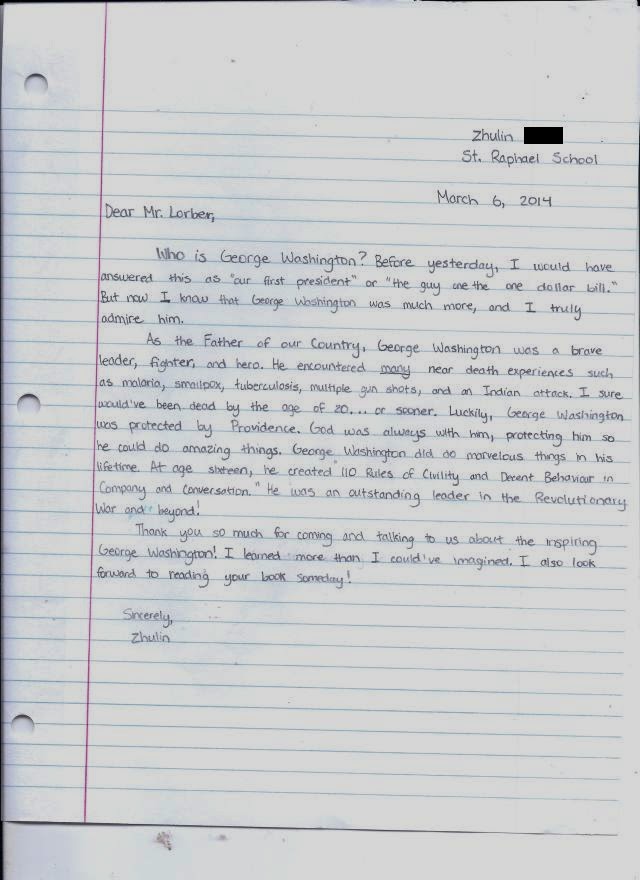 Zhulin
St. Raphael School
March 6, 2014
Dear Mr. Lorber,
Who is George Washington? Before yesterday, I would have
answered this as "our first president" or "the guy one the one dollar bill."
But now I know that George Washington was much more, and I truly
admire him.
As the Father of our Country, George Washington was a brave
leader, fighter, and hero. He encountered many near death experiences such
as malaria, smallpox, tuberculosis, multiple gun shots, and an Indian attack. I sure
would've been dead by the age of 20... or sooner. Luckily, George Washington
was protected by Providence. God was always with him, protecting him so
he could do amazing things. George Washington did do marvelous things in his
lifetime. At age sixteen, he created "110 Rules of Civility and Decent Behaviour in
Company and Conversation." He was an outstanding leader in the Revolutionary
War and beyond!
Thank you so much for coming and talking to us about the inspiring
George Washington! I learned more than I could've imagined. I also look
forward to reading your book someday!
Sincerely,
Zhulin